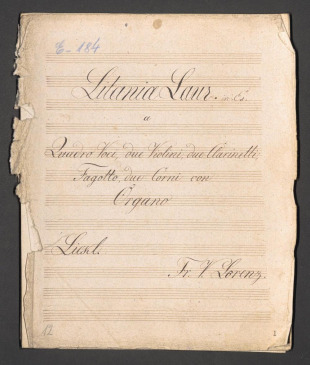 E-184
Litania Laur. in Es.
a
Quadro Voci, due Violini, due Clarinetti,
Fagotto, due Corni con
Organo
Liesl.
Fr. V. Lorenz.
12
1